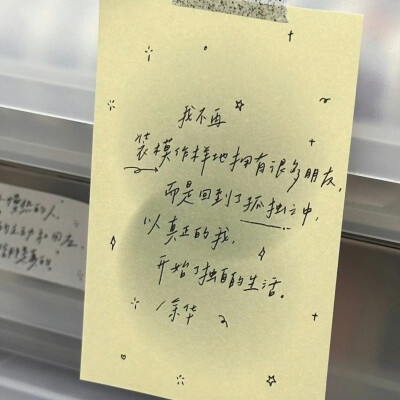 我不再
装模作样地拥有很多朋友，
而是回到了孤独之中，
以真正的我，
开始了独自的生活。
余华